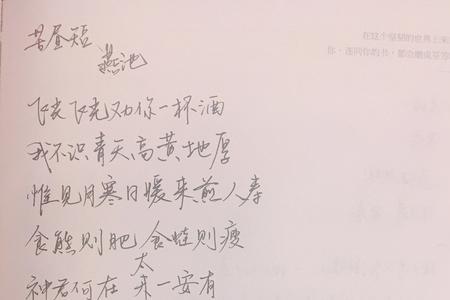 在这个 的世界上
你，连同你的书，都会
苦昼短
燕池
飞光飞光劝你一杯酒
我不识青天高黄地厚
惟见月寒日暖来煎人寿
食熊则肥 食蛙则瘦
神君何在 太一安有